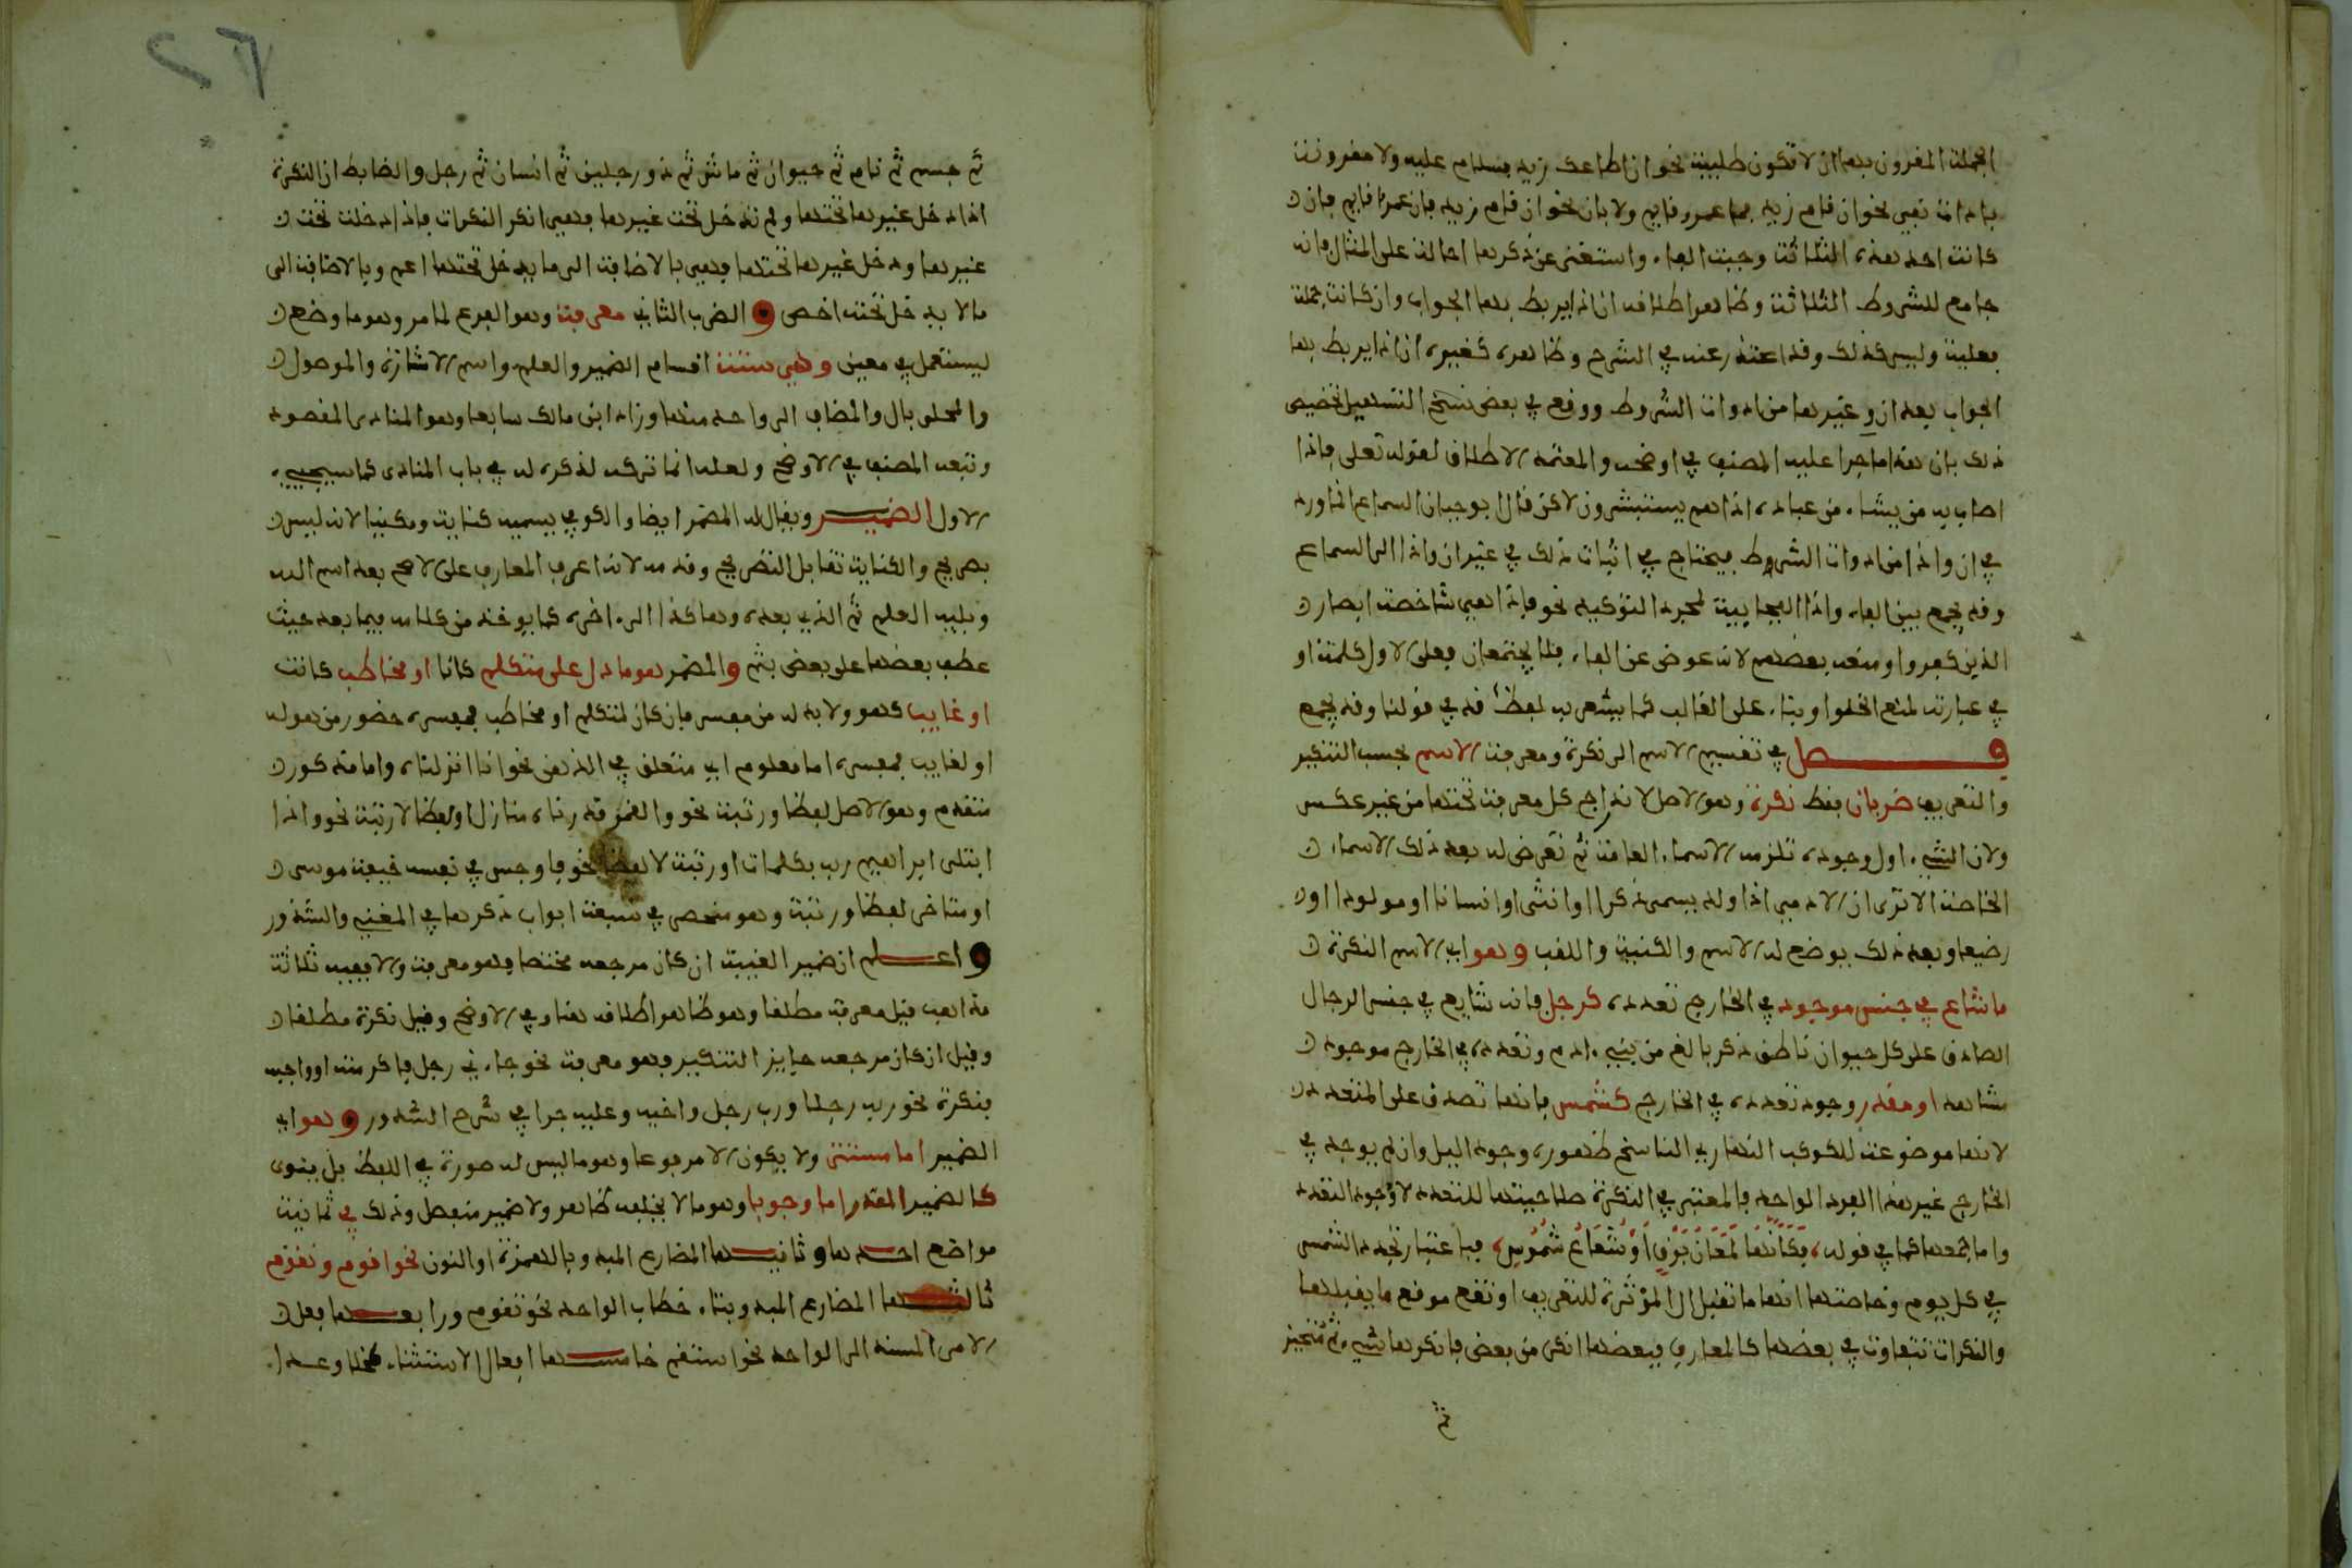 الجملة المقرون بها ان لا تكون طلبية نحو ان اطاعك زيد فسلام عليه ولا مقرونة
باداة نفي نحو ان قام زيد فما عمرو قايم ولا بان نحو ان قام زيد فان عمرا قايم فان
كانت احد هذه الثلاثة وجبت الفاء واستغنى عن ذكرها احالة على المثال فانه
جامع للشروط الثلاثة وظاهر اطلاقه ان اذا يربط بها الجواب وان كانت جملة
فعلية وليس كذلك وقد اعتذر عنه في الشرح وظاهره كغيره ان اذا يربط بها
الجواب بعد ان وغيرها من ادوات الشروط ووقع في بعض نسخ التسهيل تخصيص
ذلك بان هذا ما جرا عليه المصنف في اوضحه والمعتمد الاطلاق لقوله تعلى فاذا
اصاب به من يشاء من عباده اذا هم يستبشرون لاكن قال ابو حيان السماع انما ورد
في ان واذا من ادوات الشروط فيحتاج في اثبات ذلك في غير ان واذا الى السماع
وقد يجمع بين الفاء واذا الفجايية لمجرد التوكيد نحو فاذا هي شاخصة ابصار
الذين كفروا ومنعه بعضهم لانه عوض عن الفاء فلا يجتمعان فعلى الاول كلمة او
في عبارته لمنع الخلو او بناء على الغالب كما يشعر به لفظ قد في قولنا وقد يجمع
فصل في تقسيم الاسم الى نكرة ومعرفة الاسم بحسب التنكير
والتعريف ضربان فقط نكرة وهو الاصل لاندراج كل معرفة تحتها من غير عكس
ولان الشيء اول وجوده تلزمه الاسماء العامة ثم تعرض له بعد ذلك الاسماء
الخاصة الا ترى ان الادمي اذا ولد يسمى ذكرا او انثى او انسانا او مولودا او
رضيعا وبعد ذلك يوضع له الاسم والكنية واللقب وهو اي الاسم النكرة
ما شاع في جنس موجود في الخارج تعدده كرجل فانه شايع في جنس الرجال
الصادق على كل حيوان ناطق ذكر بالغ من بني ادم وتعدده في الخارج موجود
مشاهد او مقدر وجود تعدده في الخارج كشمس فانها تصدق على المتعدد
لانها موضوعة للكوكب النهاري الناسخ ظهوره وجود الليل وان لم يوجد في
الخارج غير هذا الفرد الواحد فالمعتبر في النكرة صلاحيتها للتعدد لا وجود التعدد
واما جمعها كما في قوله فكانها لمعان برق او شعاع شموس فباعتبار تجدد الشمس
في كل يوم وخاصتها انها ما تقبل ال المؤثرة للتعريف او تقع موقع ما يقبلها
والنكرات تتفاوت في بعضها كالمعارف فبعضها انكر من بعض فانكرها شيء ثم متحيز
ثم
٢٦
ثم جسم ثم نام ثم حيوان ثم ماش ثم ذو رجلين ثم انسان ثم رجل والضابط ان النكرة
اذا دخل غيرها تحتها ولم تدخل تحت غيرها فهي انكر النكرات فاذا دخلت تحت
غيرها ودخل غيرها تحتها فهي بالاضافة الى ما يدخل تحتها اعم وبالاضافة الى
ما لا يدخل تحته اخص والضرب الثاني معرفة وهو الفرع لما مر وهو ما وضع
ليستعمل في معين وهي ستة اقسام الضمير والعلم واسم الاشارة والموصول
والمحلى بال والمضاف الى واحد منها وزاد ابن مالك سابعا وهو المنادى المقصود
وتبعه المصنف في الاوضح ولعله انما تركه لذكره له في باب المنادى كما سيجيء
الاول الضمير ويقال له المضمر ايضا والكوفي يسميه كناية ومكنيا لانه ليس
بصريح والكناية تقابل التصريح وقدمه لانه اعرف المعارف على الاصح بعد اسم الله
ويليه العلم ثم الذي بعده وهاكذا الى اخره كما يوخذ من كلامه فيما بعد حيث
عطف بعضها على بعض بثم والمضمر هو ما دل على متكلم كانا او مخاطب كانت
او غايب كهو ولا بد له من مفسر فان كان لمتكلم او مخاطب فمفسره حضور من هو له
او لغايب فمفسره اما معلوم اي متعلق في الذهن نحو انا انزلناه واما مذكور
متقدم وهو الاصل لفظا ورتبة نحو والقمر قدرناه منازل او لفظا لا رتبة نحو واذا
ابتلى ابراهيم ربه بكلمات او رتبة لا لفظا نحو فاوجس في نفسه خيفة موسى
او متاخر لفظا ورتبة وهو منحصر في سبعة ابواب ذكرها في المغني والشذور
واعلم ان ضمير الغيبة ان كان مرجعه مختصا فهو معرفة والا ففيه ثلاثة
مذاهب قيل معرفة مطلقا وهو ظاهر اطلاقه هنا وفي الاوضح وقيل نكرة مطلقا
وقيل ان كان مرجعه جايز التنكير فهو معرفة نحو جاءني رجل فاكرمته او واجبه
فنكرة نحو ربه رجلا ورب رجل واخيه وعليه جرا في شرح الشذور وهو اي
الضمير اما مستتر ولا يكون الا مرفوعا وهو ما ليس له صورة في اللفظ بل ينوى
كالضمير المقدر اما وجوبا وهو ما لا يخلفه ظاهر ولا ضمير منفصل وذلك في ثمانية
مواضع احدها وثانيها المضارع المبدو بالهمزة او النون نحو اقوم ونقوم
ثالثها المضارع المبدو بتاء خطاب الواحد نحو تقوم ورابعها فعل
الامر المسند الى الواحد نحو استقم خامسها افعال الاستثناء كخلا وعدا